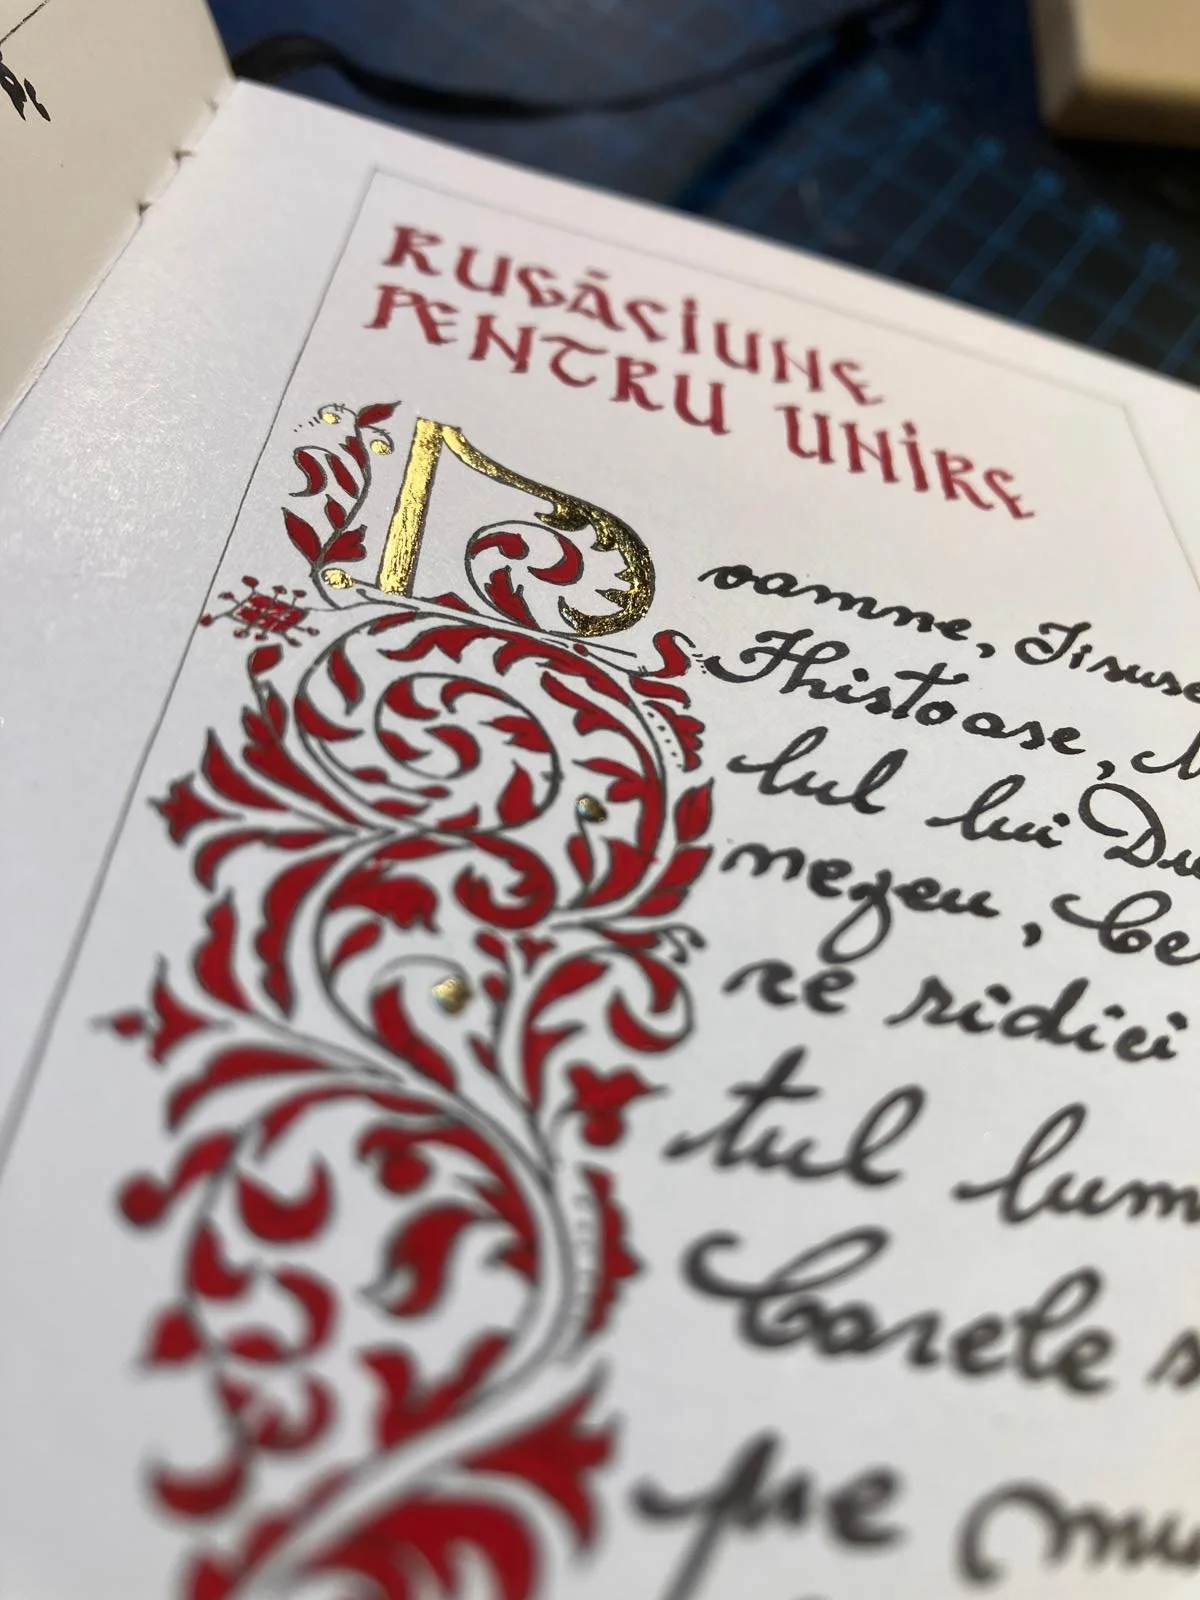 RUGĂCIUNE
PENTRU UNIRE
Doamne, Iisuse
Hristoase, M
lul lui Du
nezeu, Ce
re ridici
tul lum
Carele s
pe mu